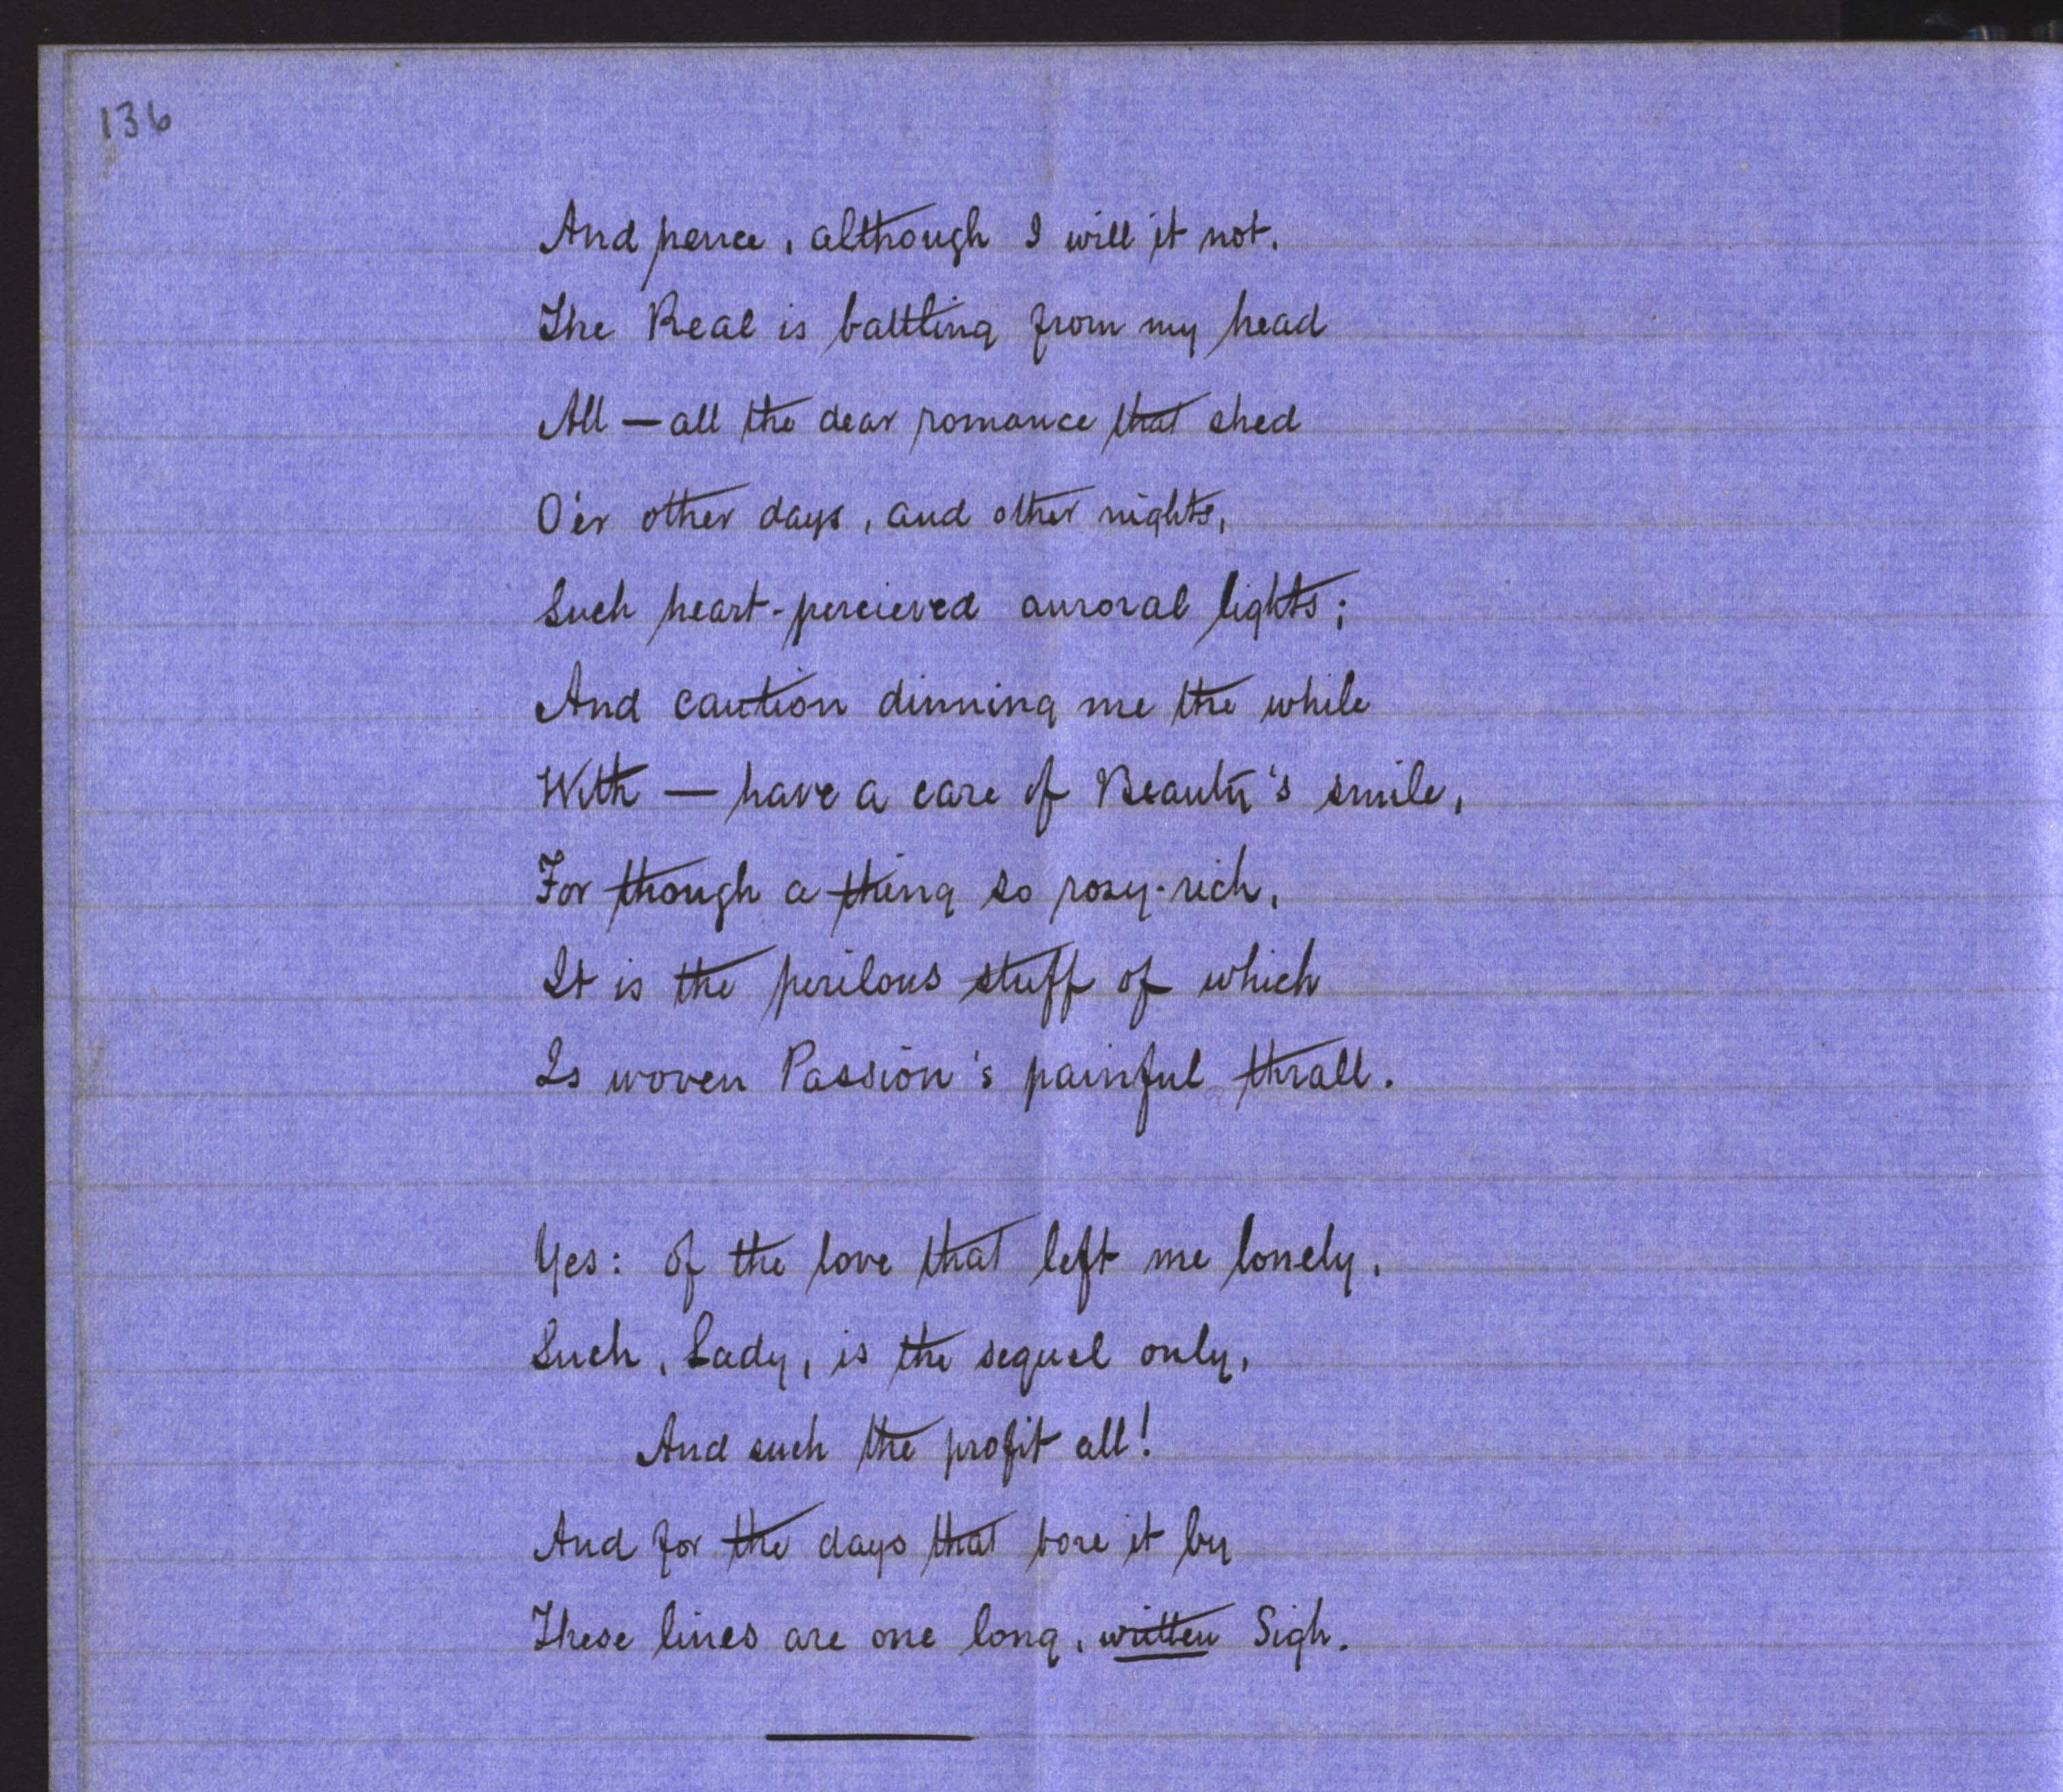 136
And hence, although I will it not,
The Real is battling from my head
All — all the dear romance that shed
O'er other days, and other nights,
Such heart-percieved auroral lights;
And caution dinning me the while
With — have a care of Beauty's smile,
For though a thing so rosy-rich,
It is the perilous stuff of which
Is woven Passion's painful thrall.
Yes: of the love that left me lonely,
Such, Lady, is the sequel only,
And such the profit all!
And for the days that bore it by
These lines are one long, written Sigh.